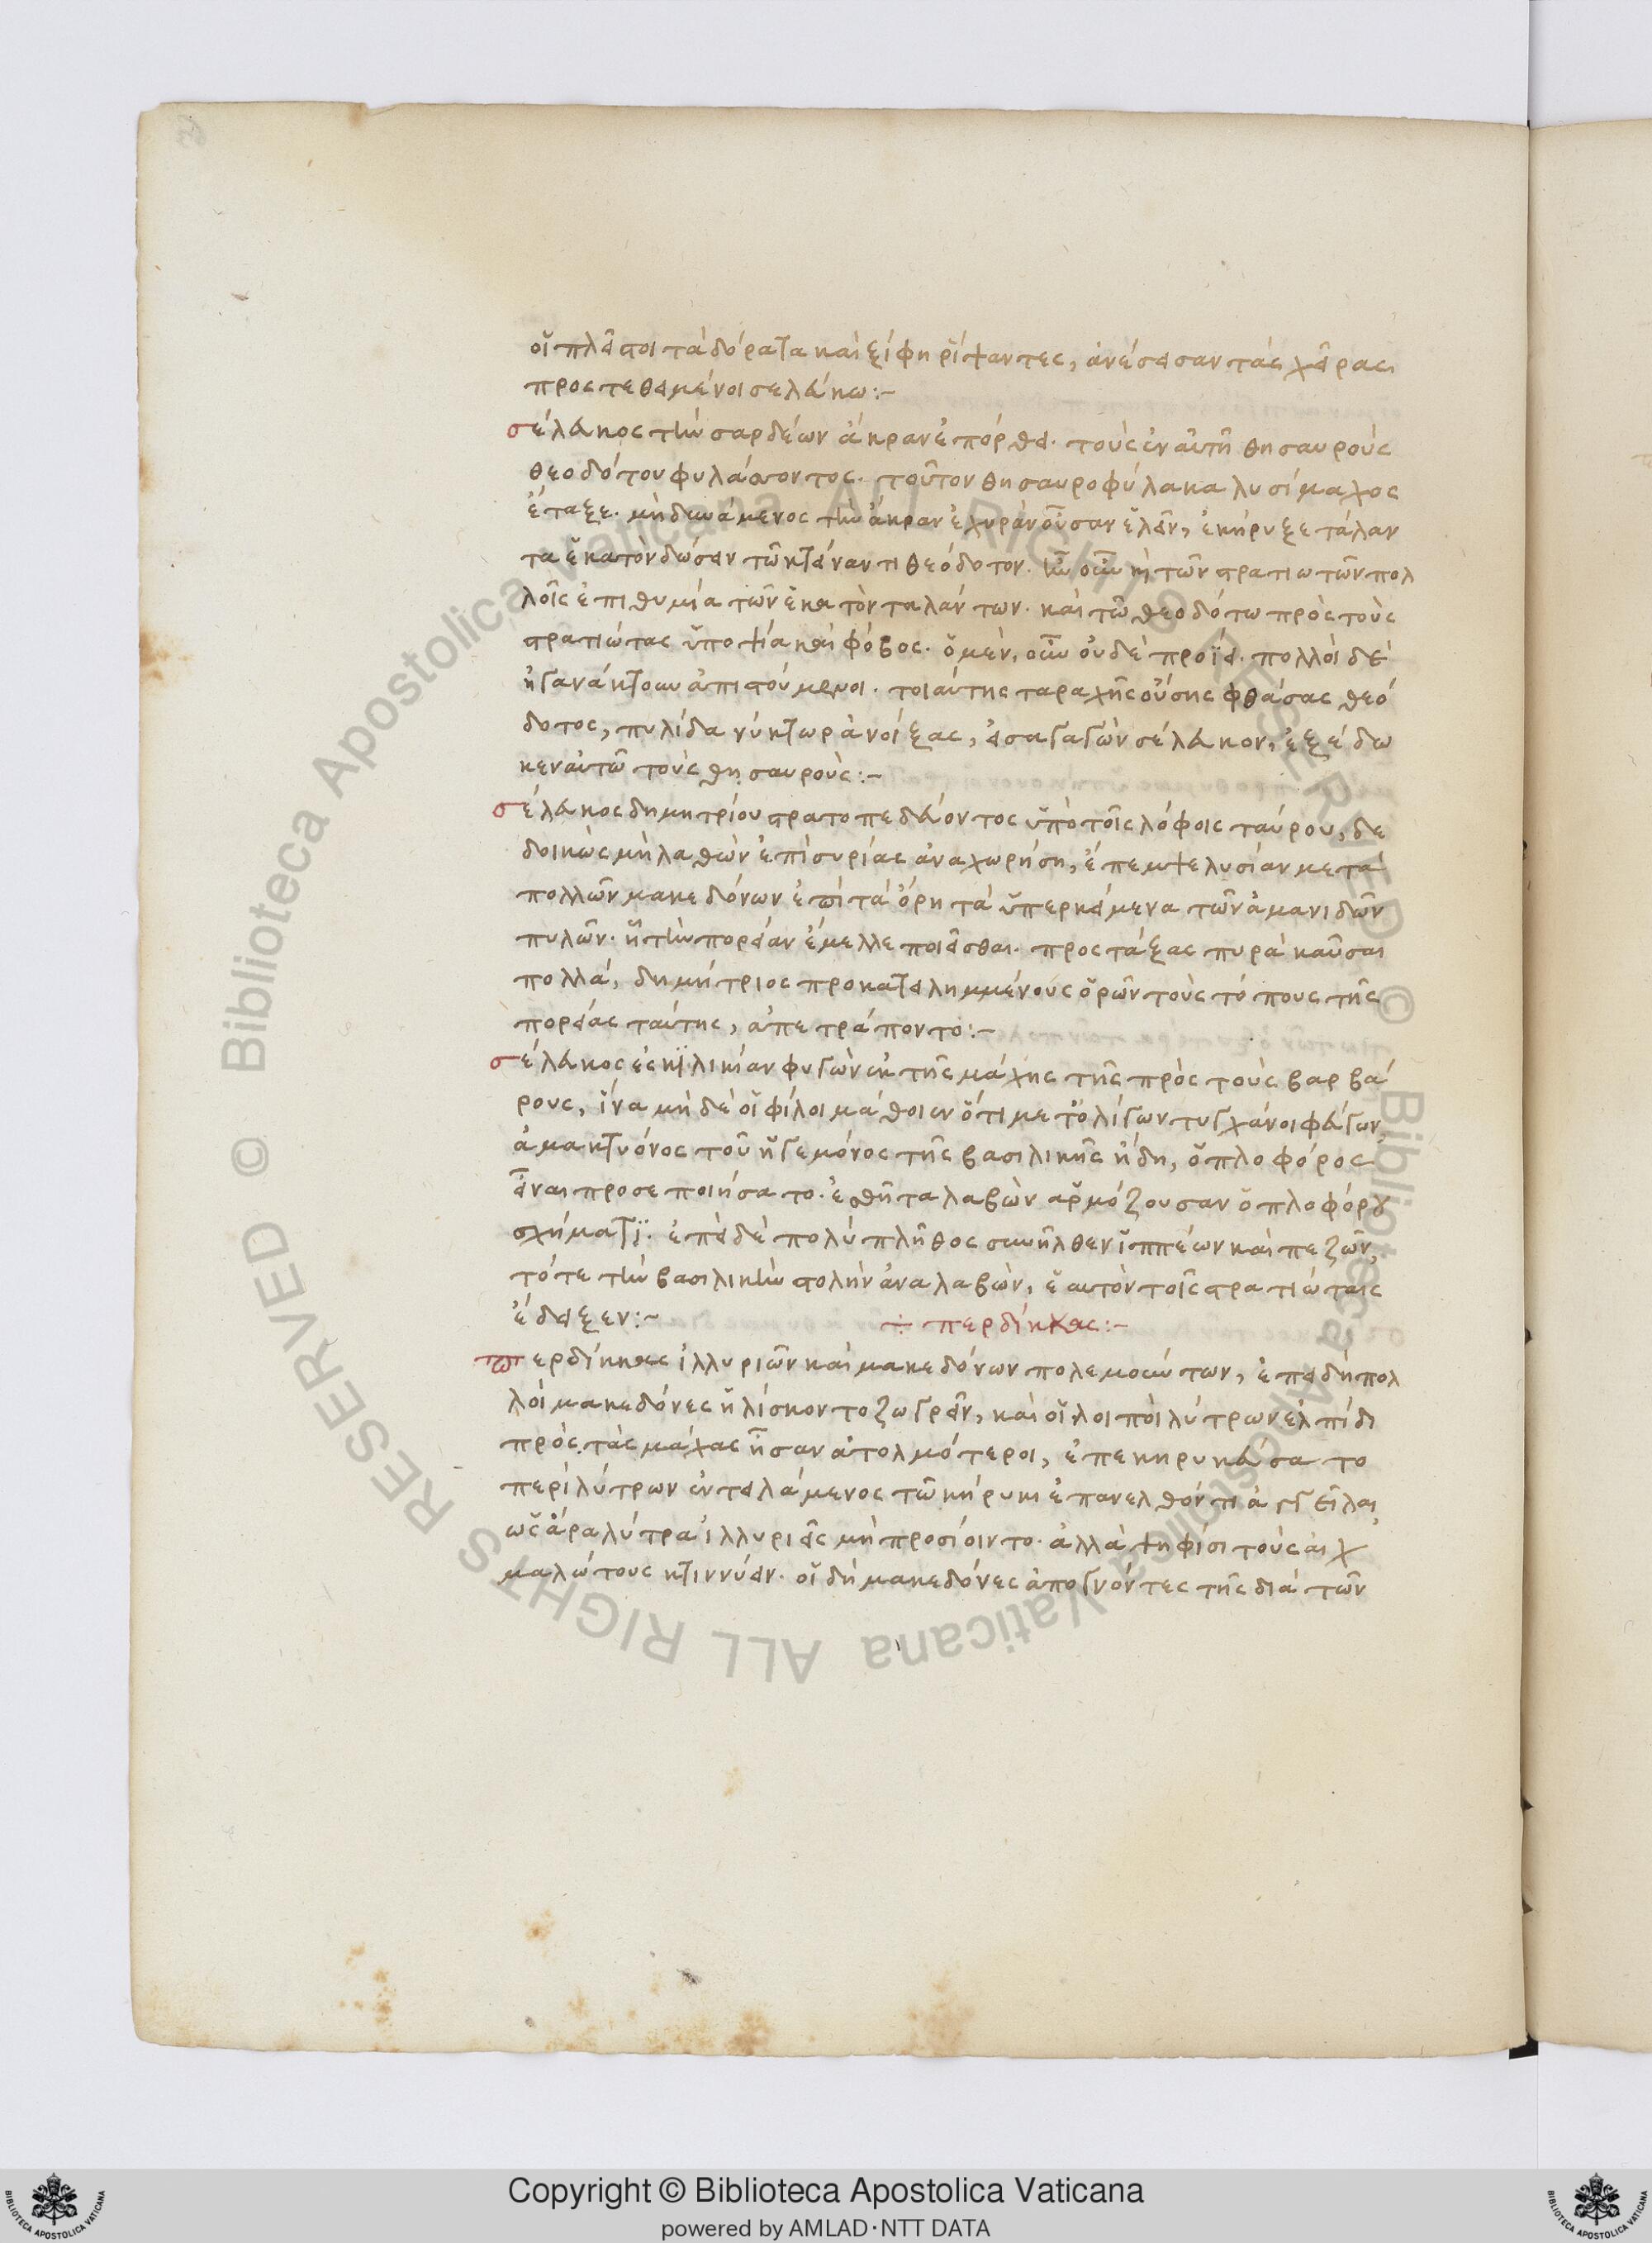 οἱ πλεῖστοι τὰ δόρατα καὶ ξίφη ῥίψαντες, ἀνέσεισαν τὰς χεῖρας
προστεθειμένοι σελεύκω:-
σέλευκος τὴν σαρδέων ἄκραν ἐπόρθει. τοὺς ἐν αὐτῆ θησαυροὺς
θεοδότου φυλάσσοντος. τοῦτον θησαυροφύλακα λυσίμαχος
ἔταξε. μὴ δυνάμενος τὴν ἄκραν ἐχυρὰν οὖσαν ἑλεῖν, ἐκήρυξε τάλαν
τα ἑκατὸν δώσειν τῶ κτείναντι θεόδοτον. ἦν οὖν καὶ τῶν στρατιωτῶν πολ
λοῖς ἐπιθυμία τῶν ἑκατὸν ταλάντων. καὶ τῶ θεοδότω πρὸς τοὺς
στρατιώτας ὑποψία καὶ φόβος. ὁ μὲν, οὖν οὐδὲ προΐει. πολλοὶ δὲ
ἠγανάκτουν ἀπιστούμενοι. τοιαύτης ταραχῆς οὔσης φθάσας θεό
δοτος, πυλίδα νύκτωρ ἀνοίξας, εἰσαγαγὼν σέλευκον, ἐξέδω
κεν αὐτῶ τοὺς θησαυρούς:-
σέλευκος δημητρίου στρατοπεδεύοντος ὑπὸ τοῖς λόφοις ταύρου, δε
δοικὼς μὴ λαθὼν ἐπὶ συρίας ἀναχωρήση, ἔπεμψε λυσίαν μετὰ
πολλῶν μακεδόνων ἐπὶ τὰ ὄρη τὰ ὑπερκείμενα τῶν ἀμανιδῶν
πυλῶν. ἧ τὴν πορείαν ἔμελλε ποιεῖσθαι. προστάξας πυρὰ καῦσαι
πολλὰ, δημήτριος προκατειλημμένους ὁρῶν τοὺς τόπους τῆς
πορείας ταύτης, ἀπετράποντο:-
σέλευκος ἐς κϊλικίαν φυγὼν ἐκ τῆς μάχης τῆς πρὸς τοὺς βαρβά
ρους, ἵνα μὴ δὲ οἱ φίλοι μάθοιεν ὅτι μετ' ὀλίγων τυγχάνοι φεύγων
ἀμακτυόνος τοῦ ἡγεμόνος τῆς βασιλικῆς ἤδη, ὁπλοφόρος
εἶναι προσεποιήσατο. ἐσθῆτα λαβὼν ἁρμόζουσαν ὁπλοφόρου
σχήματϊ. ἐπεὶ δὲ πολὺ πλῆθος συνῆλθεν ἱππέων καὶ πεζῶν,
τότε τὴν βασιλικὴν στολὴν ἀναλαβὼν, ἑαυτὸν τοῖς στρατιώταις
ἔδειξεν:-
÷ περδίκκας:-
περδίκκας ἰλλυριῶν καὶ μακεδόνων πολεμούντων, ἐπειδὴ πολ
λοὶ μακεδόνες ἡλίσκοντο ζωγρεῖν, καὶ οἱ λοιποὶ λύτρων ἐλπίδι
πρὸς τὰς μάχας ἦσαν ἀτολμότεροι, ἐπεκηρυκεύσατο
περὶ λύτρων ἐντειλάμενος τῶ κήρυκι ἐπανελθόντι ἀγγεῖλαι,
ὡς ἄρα λύτρα ἰλλυριεῖς μὴ προσίοιντο. ἀλλὰ ψηφίσι τοὺς αἰχ
μαλώτους κτιννύειν. οἱ δὴ μακεδόνες ἀπογνόντες τῆς διὰ τῶν
Copyright © Biblioteca Apostolica Vaticana
powered by AMLAD·NTT DATA